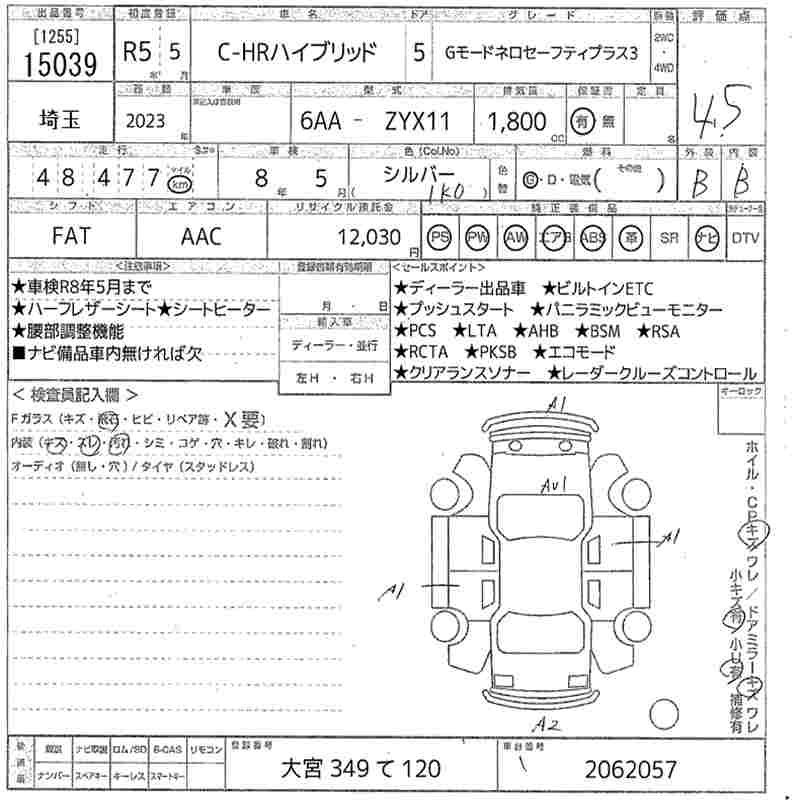 出品番号 初度登録 車名 ドア グレード 評価点
[1255]
15039 R5 年 5 月 C-HRハイブリッド 5 Gモードネロセーフティプラス3 2WD・4WD
4.5
型式 排気量 保証書 定員
埼玉 2023 年 6AA - ZYX11 1,800 cc 有 無 名
走行 車検 色(Col.No) 燃料 外装 内装
48477 マイル km 8 年 5 月 シルバー (1K0) 色替 G・D・電気( その他 ) B B
シフト エアコン リサイクル預託金 純正装備品
FAT AAC 12,030 円 PS PW AW エアB ABS 革 SR ナビ DTV
<注意事項> 登録書類有効期限 <セールスポイント>
★車検R8年5月まで
★ハーフレザーシート★シートヒーター
★腰部調整機能
■ナビ備品車内無ければ欠
月・日
輸入車
ディーラー・並行
左H・右H
★ディーラー出品車 ★ビルトインETC
★プッシュスタート ★パニラミックビューモニター
★PCS ★LTA ★AHB ★BSM ★RSA
★RCTA ★PKSB ★エコモード
★クリアランスソナー ★レーダークルーズコントロール
キーロック
<検査員記入欄>
Fガラス(キズ・飛石・ヒビ・リペア跡・X要)
内装(キズ・スレ・汚れ・シミ・コゲ・穴・キレ・破れ・割れ)
オーディオ(無し・穴)/タイヤ(スタッドレス)
A1
AU1
A1
A1
A2
ホイル・CPキズワレ/ドアミラーキズワレ
小キズ有 小U有 補修有
後送品 取説 ナビ取説 ロム/SD B-CAS リモコン
ナンバー スペアキー キーレス スマートキー
登録番号
大宮 349 て 120
車台番号
2062057